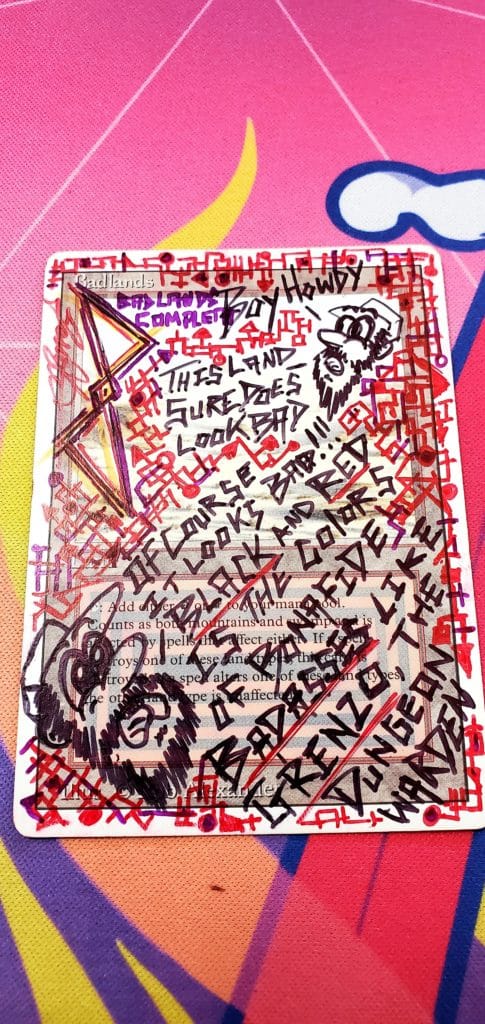 Badlands
BADLANDS
COMPLETE
BOY HOWDY
THIS LAND
SURE DOES
LOOK BAD
OF COURSE
IT LOOKS BAD!!!
IT'S BLACK AND RED
THE COLORS
OF BONAFIDE
BADASSES LIKE
GRENZO THE
DUNGEON
WARDEN
: Add either or to your mana pool.
Counts as both mountains and swamps and is
affected by spells that affect either. If a spell
destroys one of these land types, this card is
a spell alters one of these land types,
the other land type is unaffected.
Illus. Rob Alexander